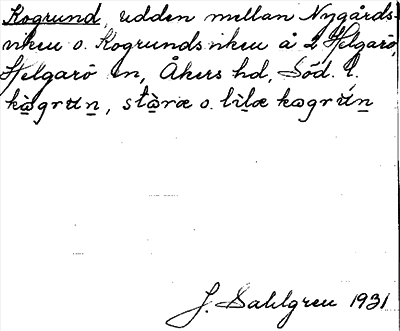 Kogrund, udden mellan Nygårds-
viken o. Kogrundsviken å 2 Helgarö,
Helgarö sn, Åkers hd, Söd. l.
kɷ̀grɯn̲, stɷ̀ræ o. lìlæ kɷgrɯ́n̲
J. Sahlgren 1931